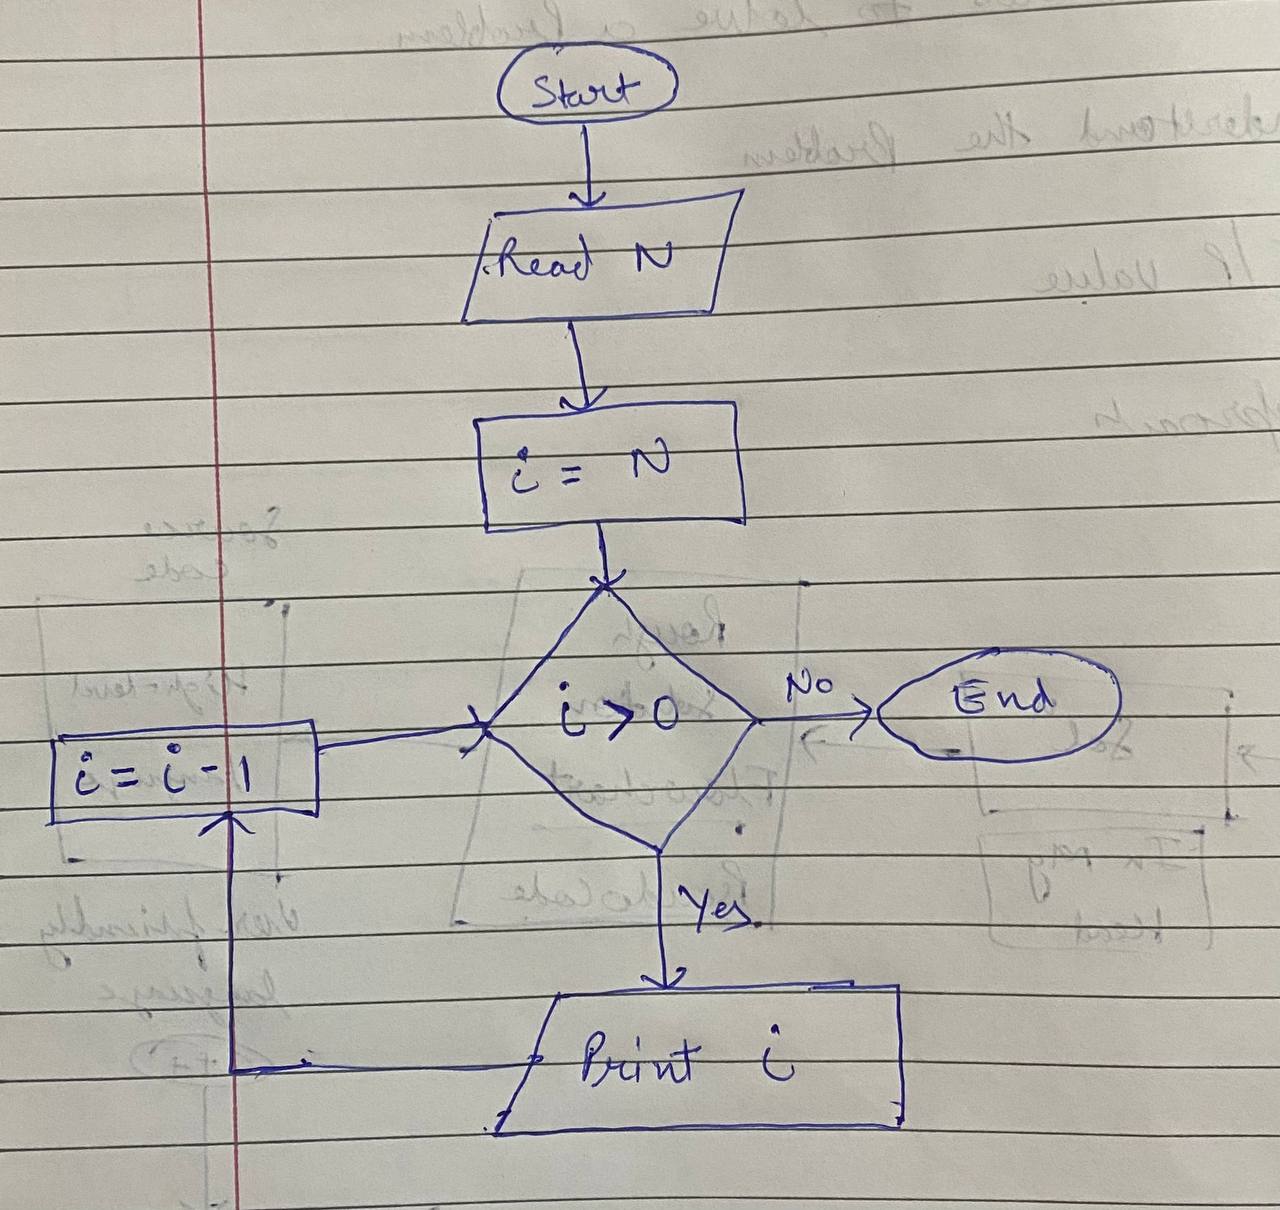 Start
Read N
i = N
i > 0
No
End
i = i - 1
Yes.
Print i